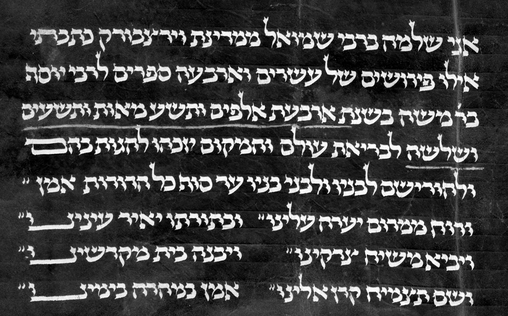 אני שלמה ברבי שמואל ממדינת וירצבורק כתבתי
אילו פירושים של עשרים וארבעה ספרים לרבי יוסף
בר משה בשנת ארבעת אלפים ותשע מאות ותשעים
ושלשה לבריאת עולם והמקום יזכהו להגות בהם
ולהורישם לבניו ולבני בניו עד סוף כל הדורות אמן״
ורוח ממרום יערה עלינו״ ובתורתו יאיר עינינו״
ויביא משיח צדקינו״ ויבנה בית מקדשינו״
ושם תצמיח קרן אלינו״ אמן במהרה בימינו״